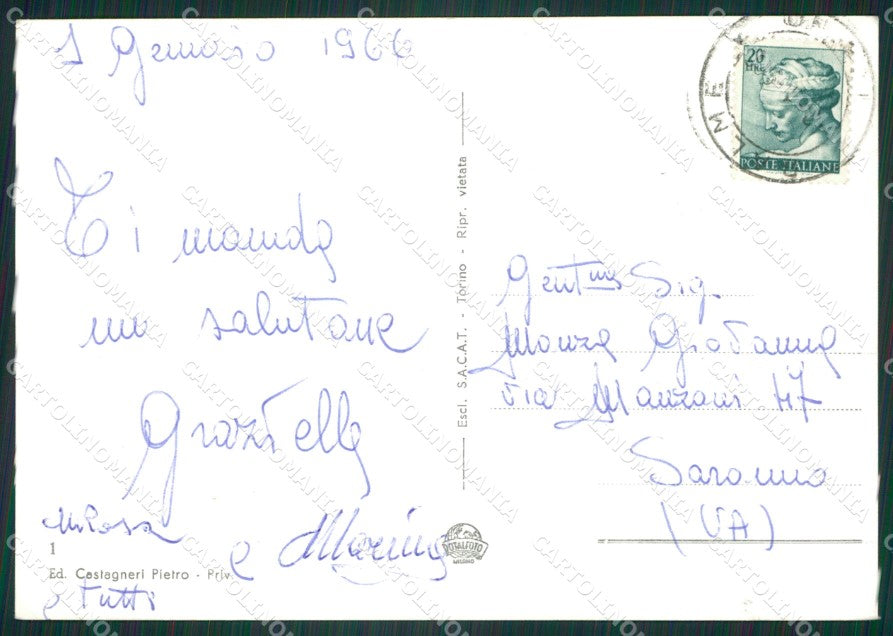 1 Gennaio 1966
Ti manda
un salutone
Graziella
M. Rosa
e Marina
e tutti
1
Ed. Castagneri Pietro - Priv.
Escl. S.A.C.A.T. - Torino - Ripr. vietata
TOTALFOTO
MILANO
20
LIRE
POSTE ITALIANE
Gent.ma Sig.
Monza Giovanna
via Manzoni 47
Saronno
(VA)
CARTOLINOMANIA